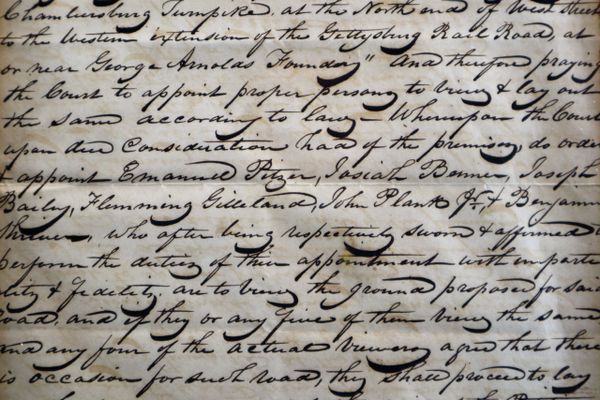 Chambersburg Turnpike, at the North end of West Street
to the Western extension of the Gettysburg Rail Road, at
or near George Arnolds Foundry" And therefore praying
the Court to appoint proper persons to view & lay out
the same according to law,— Whereupon the Court
upon due consideration had of the premises, do order
& appoint Emanuel Pitzer, Josiah Benner, Joseph
Baily, Flemming Gilleland, John Plank Jr. & Benjamin
who after being respectively sworn & affirmed
perform the duties of their appointment with imparti
lity & fidelity, are to view the ground proposed for said
road, and if they or any five of them view the same
and any four of the actual viewers agree that there
is occasion for such road, they shall proceed to lay